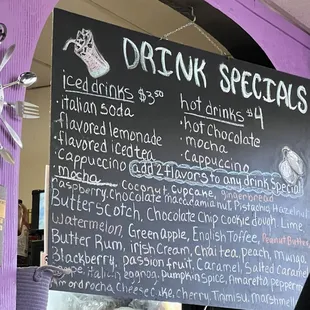 DRINK SPECIALS
iced drinks $3.50
• italian soda
• flavored lemonade
• flavored iced tea
• cappuccino
• mocha
hot drinks $4
• hot chocolate
• mocha
• cappuccino
add 2 flavors to any drink special
Coconut, Cupcake, gingerbread
Raspberry, Chocolate macadamia nut, Pistachio, Hazelnut
Butterscotch, Chocolate Chip Cookie dough, Lime
Watermelon, Green apple, English Toffee, Peanut Butter,
Butter Rum, Irish Cream, Chai tea, peach, Mango
Blackberry, passion fruit, Caramel, Salted Caramel
italian eggnog, pumpkin spice, Amaretto, peppermint
Almond roca, Cheesecake, cherry, Tiramisu, marshmell